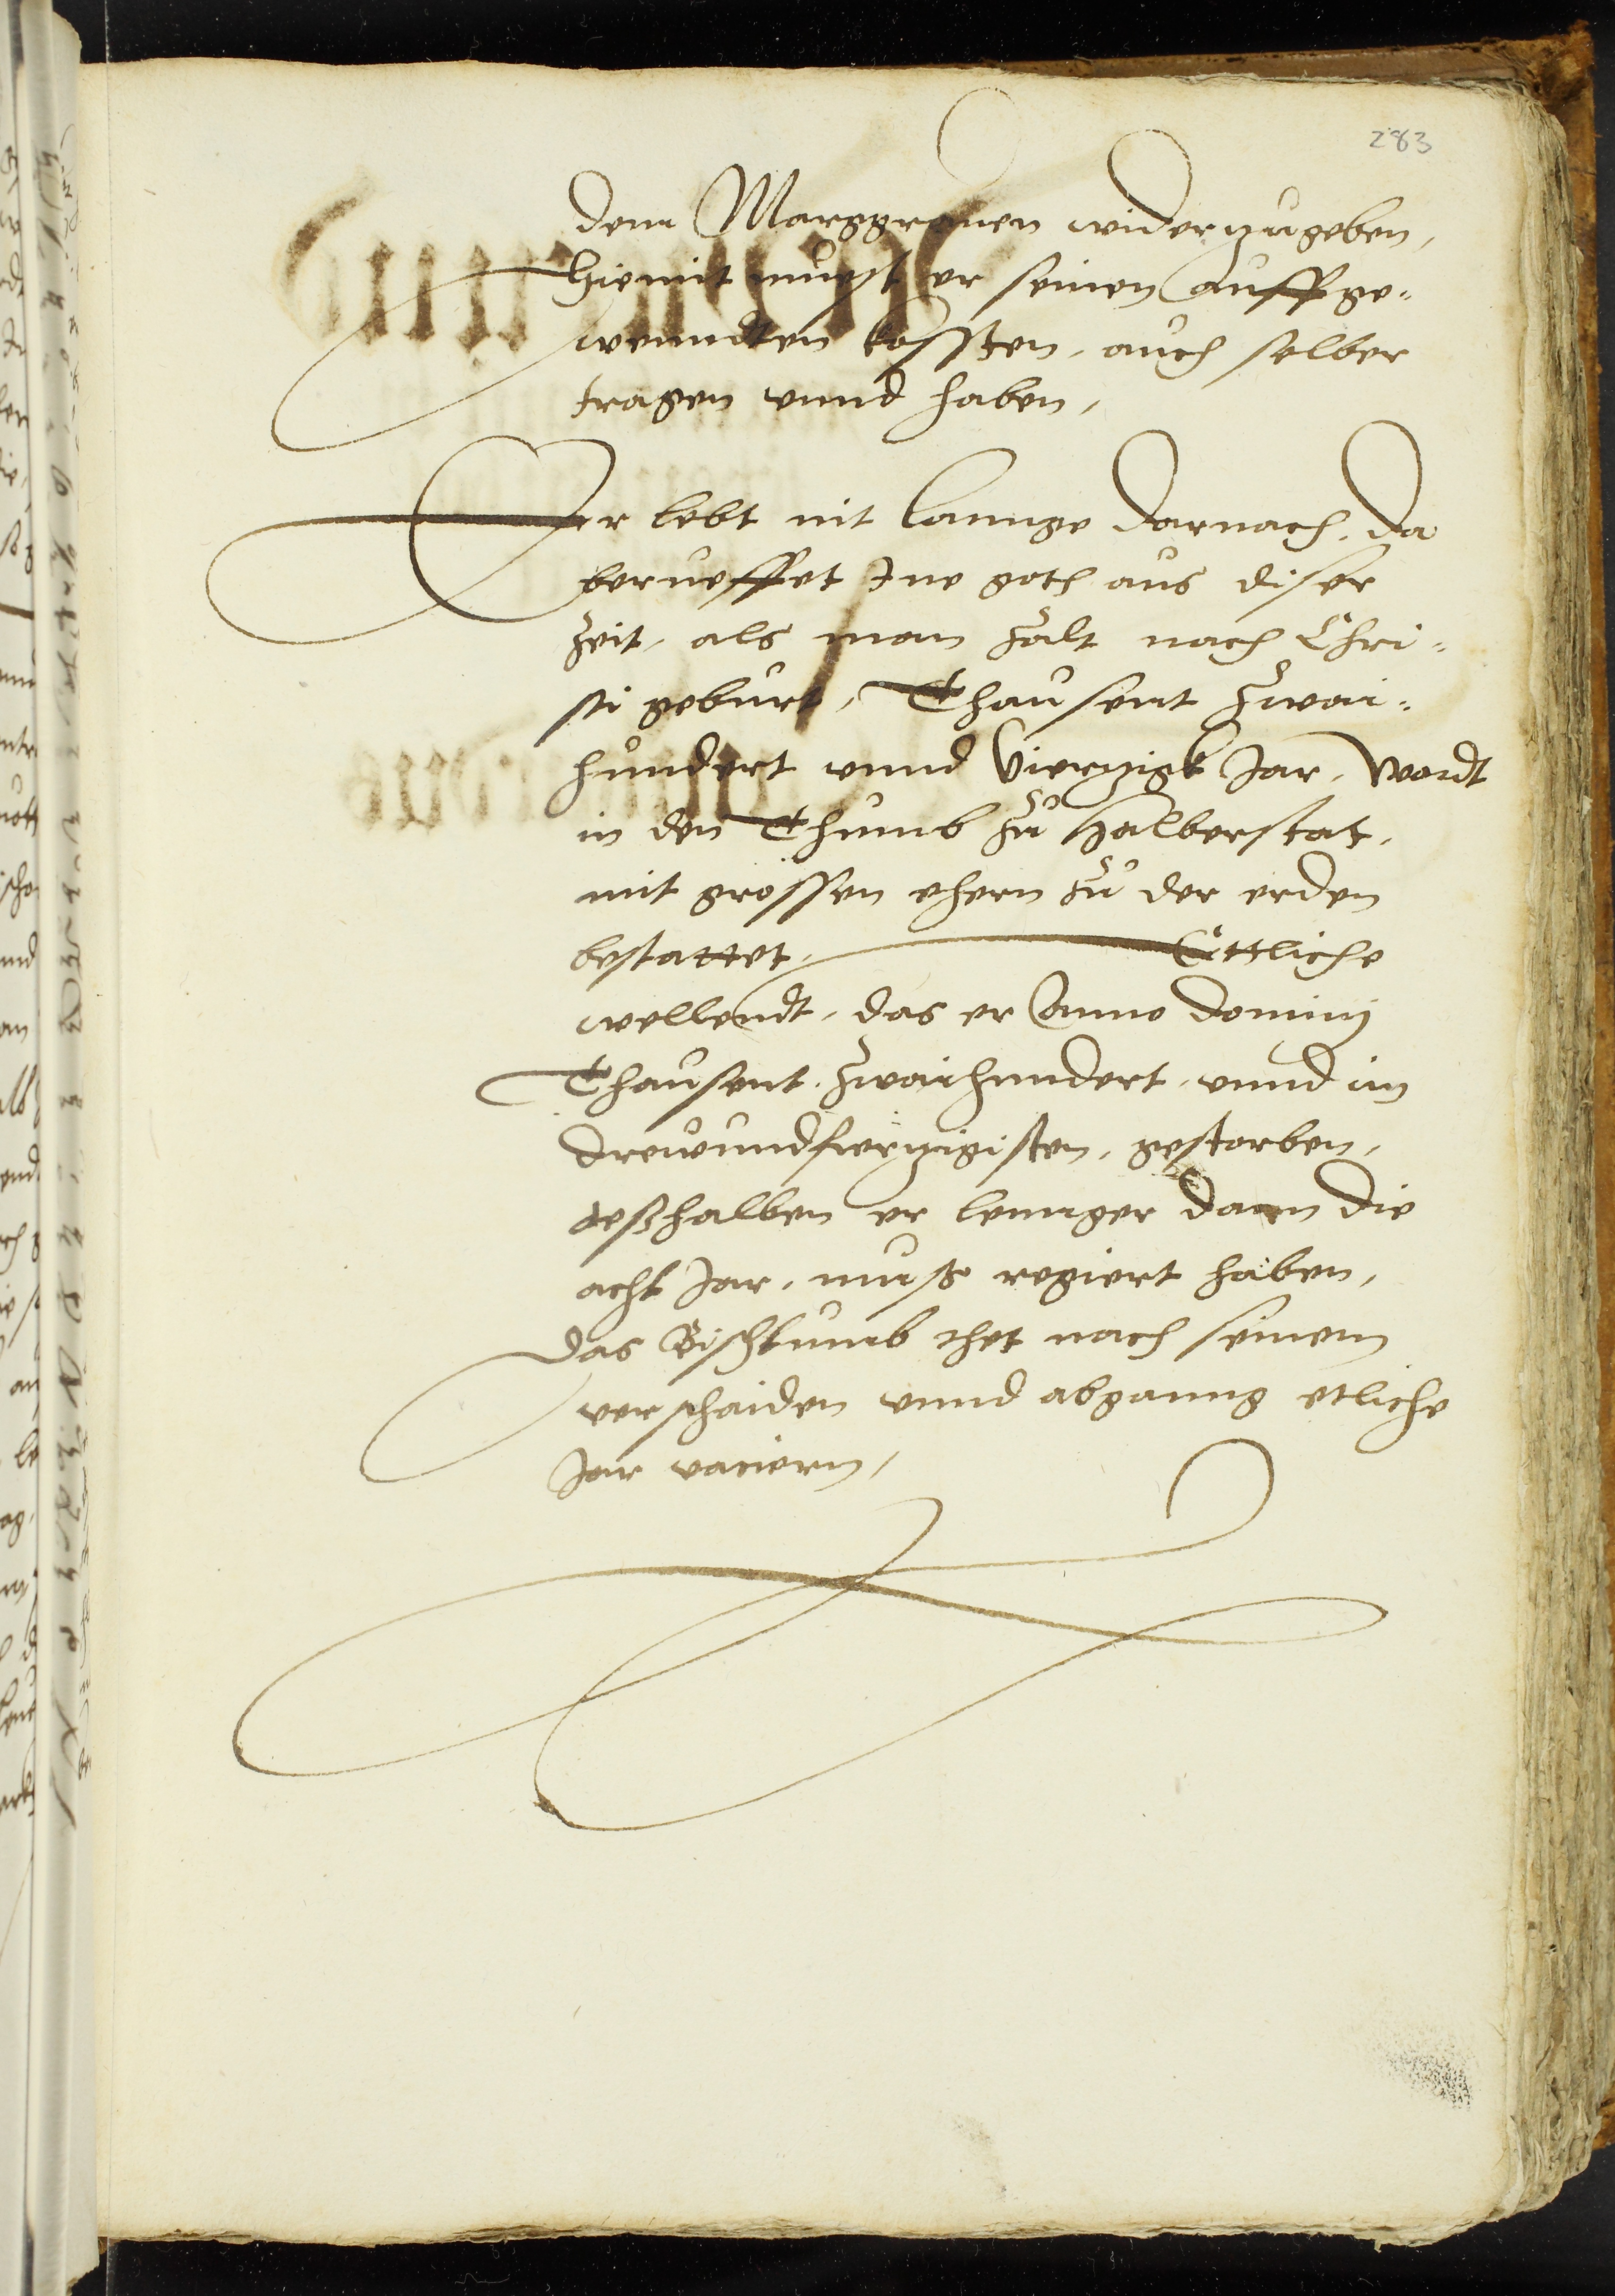 283
dem Marggrauen widerzugeben,
hiemit muest er seinen auffge-
wenndten kossten, auch selber
tragen vnnd haben,
Er lebt nit lannge darnach, da
berueffet Ine goth aus diser
Zeit, als man Zalt nach Chri-
sti geburt, Thausent Zwai-
hundert vnnd Vierzigk Jar, wardt
in den Thumb Zu Halberstat,
mit grossen ehern Zu der erden
bestattet, Ettliche
wellendt, das er Anno Dominj
Thausent, Zwaihundert, vnnd im
drewundfierzigisten, gestorben,
deßhalben er lennger dann die
acht Jar, muß regiert haben,
Das Bischtumb thet nach seinem
verschaiden vnnd abganng etliche
Jar vaciern,